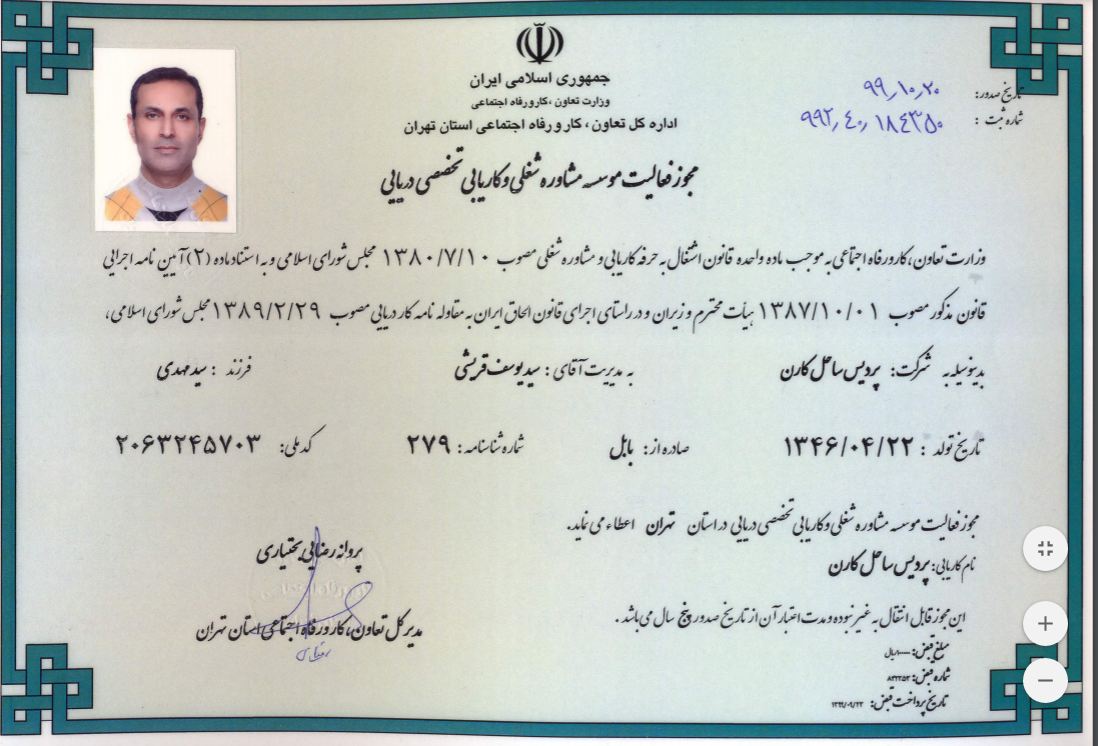 جمهوری اسلامی ایران
وزارت تعاون،کارورفاه اجتماعی
اداره کل تعاون، کار و رفاه اجتماعی استان تهران
تاریخ صدور: ۹۹٫۱۰٫۲۰
شماره ثبت : ۹۹۲٫۴۰٫۱۸۴۳۵۰
مجوز فعالیت موسسه مشاوره شغلی و کاریابی تخصصی دریایی
وزارت تعاون، کارورفاه اجتماعی به موجب ماده واحده قانون اشتغال به حرفه کاریابی و مشاوره شغلی مصوب ۱۳۸۰/۷/۱۰ مجلس شورای اسلامی و به استناد ماده (۲) آیین نامه اجرایی
قانون مذکور مصوب ۱۳۸۷/۱۰/۰۱ هیأت محترم وزیران و در راستای اجرای قانون الحاق ایران به مقاوله نامه کار دریایی مصوب ۱۳۸۹/۲/۲۹ مجلس شورای اسلامی،
بدینوسیله به شرکت: پردیس ساحل کارن به مدیریت آقای : سید یوسف قریشی فرزند : سید مهدی
تاریخ تولد : ۱۳۴۶/۰۴/۲۲ صادره از: بابل شماره شناسنامه: ۲۷۹ کد ملی: ۲۰۶۳۲۴۵۷۰۳
مجوز فعالیت موسسه مشاوره شغلی و کاریابی تخصصی دریایی در استان تهران اعطاء می نماید.
نام کاریابی: پردیس ساحل کارن
این مجوز قابل انتقال به غیر نبوده و مدت اعتبار آن از تاریخ صدور پنج سال می باشد.
مبلغ فیش: ریال
شماره فیش:
تاریخ پرداخت فیش: ۱۳۹۹/۰۹/۲۳
پروانه رضایی بختیاری
مدیر کل تعاون، کارورفاه اجتماعی استان تهران